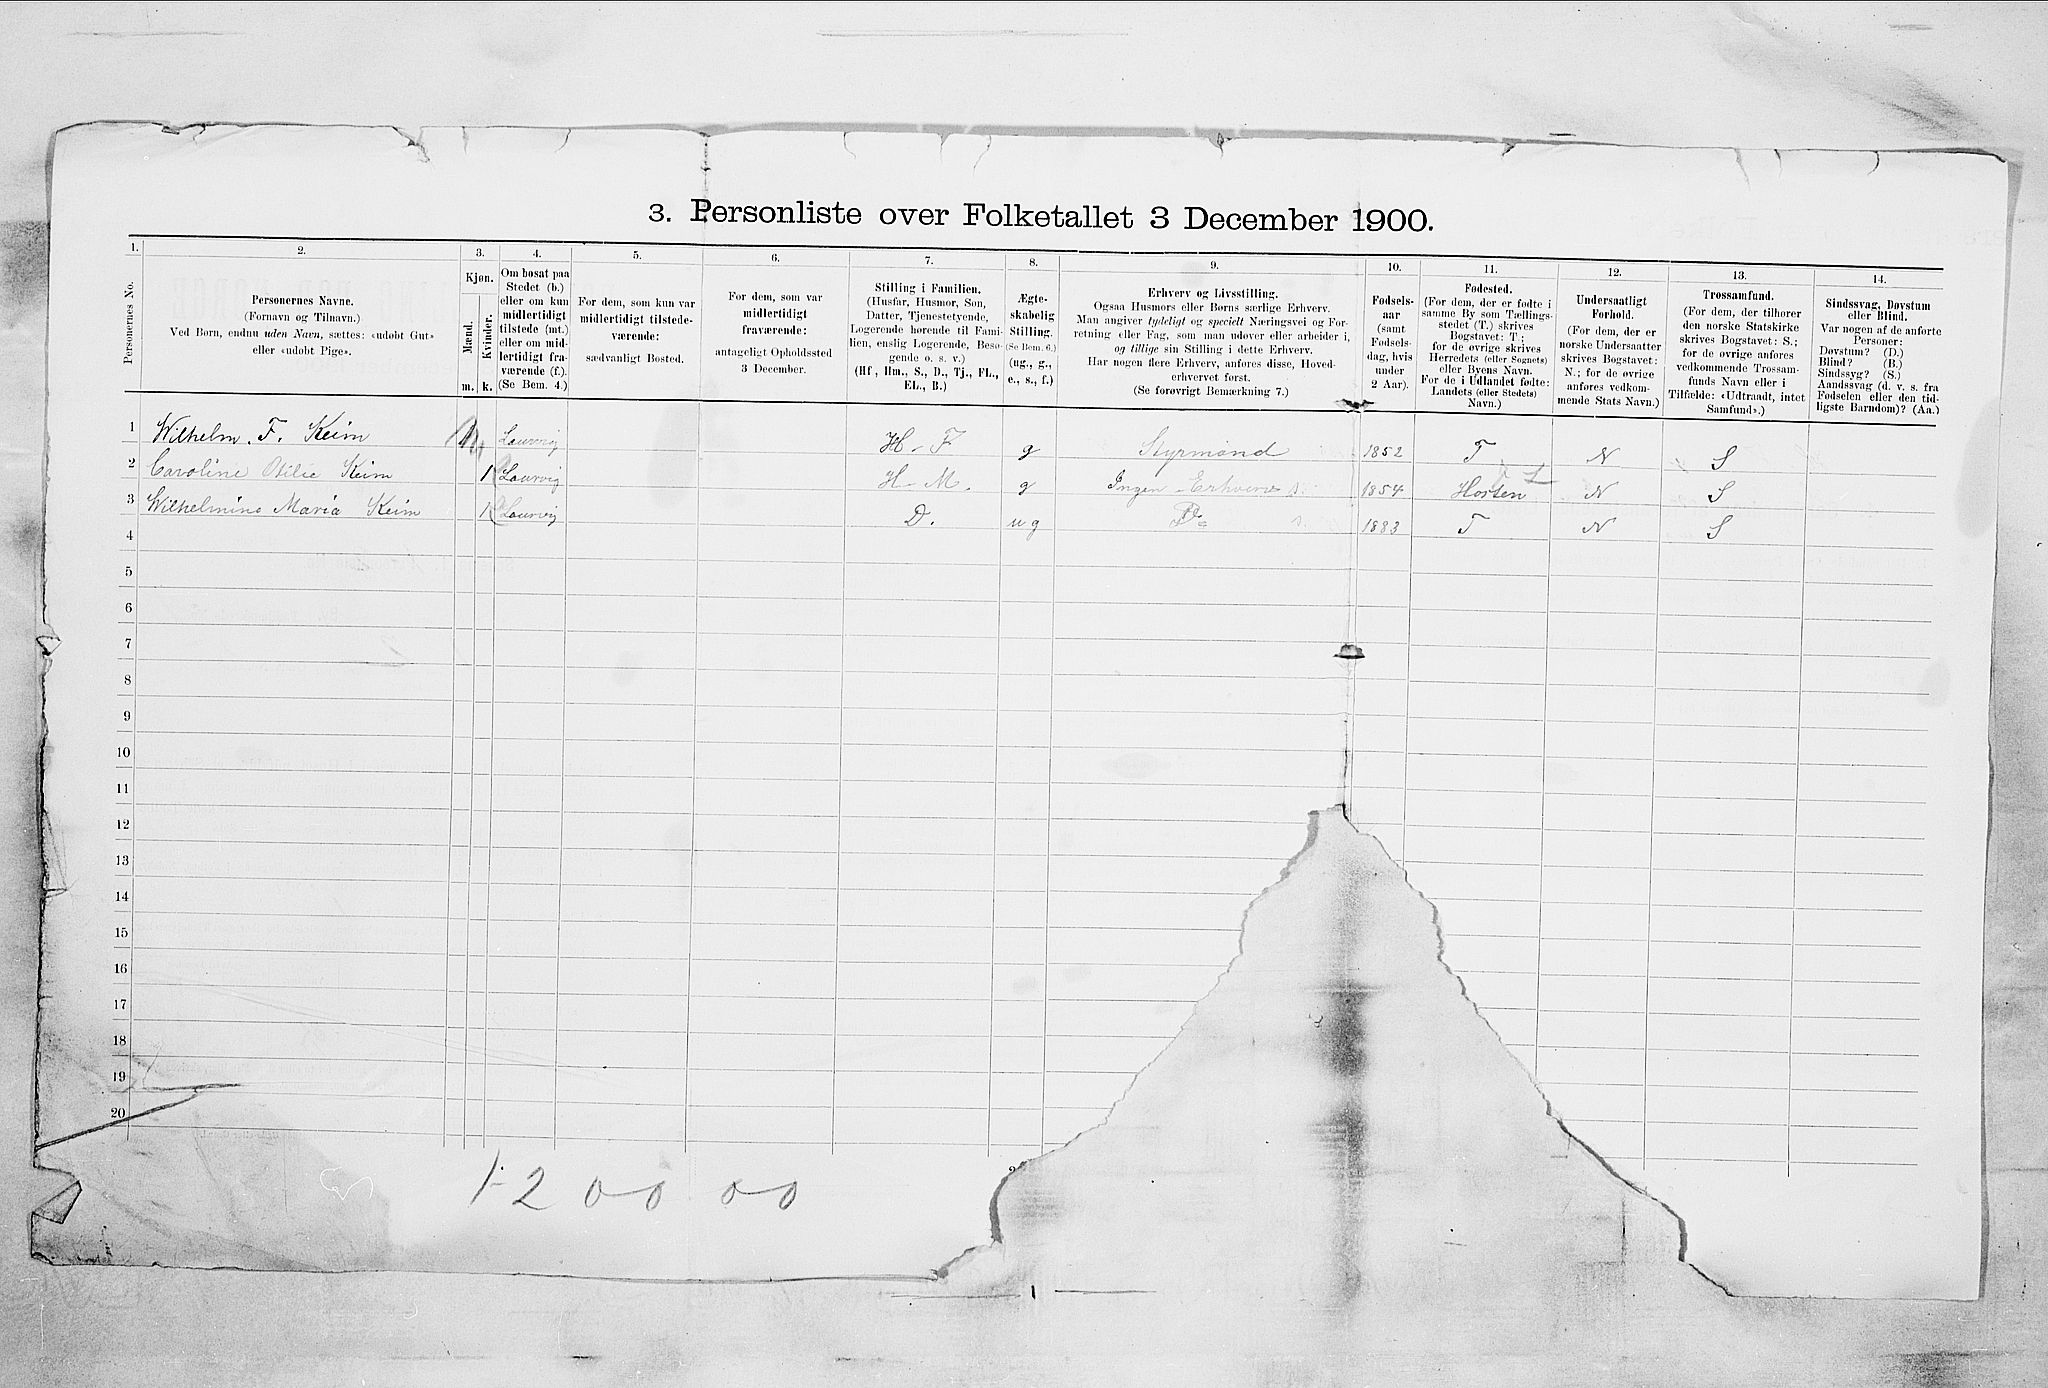 3. Personliste over Folketallet 3 December 1900.
1. 2. 3. 4. 5. 6. 7. 8. 9. 10. 11. 12. 13. 14.
Personernes No.
Personernes Navne.
(Fornavn og Tilnavn.)
Ved Børn, endnu uden Navn, sættes: «udøbt Gut»
eller «udøbt Pige».
Kjøn.
Mænd.
Kvinder.
m. k.
Om bosat paa
Stedet (b.)
eller om kun
midlertidigt
tilstede (mt.)
eller om mid-
lertidigt fra-
værende (f.).
(Se Bem. 4.)
For dem, som kun var
midlertidigt tilstede-
værende:
sædvanligt Bosted.
For dem, som var
midlertidigt
fraværende:
antageligt Opholdssted
3 December.
Stilling i Familien.
(Husfar, Husmor, Søn,
Datter, Tjenestetyende,
Logerende hørende til Fami-
lien, enslig Logerende, Besø-
gende o. s. v.)
(Hf., Hm., S., D., Tj., FL.,
EL., B.)
Ægte-
skabelig
Stilling.
(Se Bem. 6.)
(ug., g.,
e., s., f.)
Erhverv og Livsstilling.
Ogsaa Husmors eller Børns særlige Erhverv.
Man angiver tydeligt og specielt Næringsvei og For-
retning eller Fag, som man udøver eller arbeider i,
og tillige sin Stilling i dette Erhverv.
Har nogen flere Erhverv, anføres disse, Hoved-
erhvervet først.
(Se forøvrigt Bemærkning 7.)
Fødsels-
aar
(samt
Fødsels-
dag, hvis
under
2 Aar).
Fødested.
(For dem, der er fødte i
samme By som Tællings-
stedet (T.) skrives
Bogstavet: T.;
for de øvrige skrives
Herredets (eller Sognets)
eller Byens Navn.
For de i Udlandet fødte:
Landets (eller Stedets)
Navn.)
Undersaatligt
Forhold.
(For dem, der er
norske Undersaatter
skrives Bogstavet:
N.; for de øvrige
anføres vedkom-
mende Stats Navn.)
Trossamfund.
(For dem, der tilhører
den norske Statskirke
skrives Bogstavet: S.;
for de øvrige anføres
vedkommende Trossam-
funds Navn eller i
Tilfælde: «Udtraadt, intet
Samfund».)
Sindssvag, Døvstum
eller Blind.
Var nogen af de anførte
Personer:
Døvstum? (D.)
Blind? (B.)
Sindssyg? (S.)
Aandssvag (d. v. s. fra
Fødselen eller den tid-
ligste Barndom)? (Aa.)
1 Wilhelm. F. Keim Laurvig H-F g Styrmand 1852 T N S
2 Caroline Otilie Keim 1 Laurvig H-M. g Ingen Erhverv 1854 Horten N S
3 Wilhelmine Maria Keim 1 Laurvig D. ug Do 1883 T N S
4
5
6
7
8
9
10
11
12
13
14
15
16
17
18
19
20
1-2 00 00